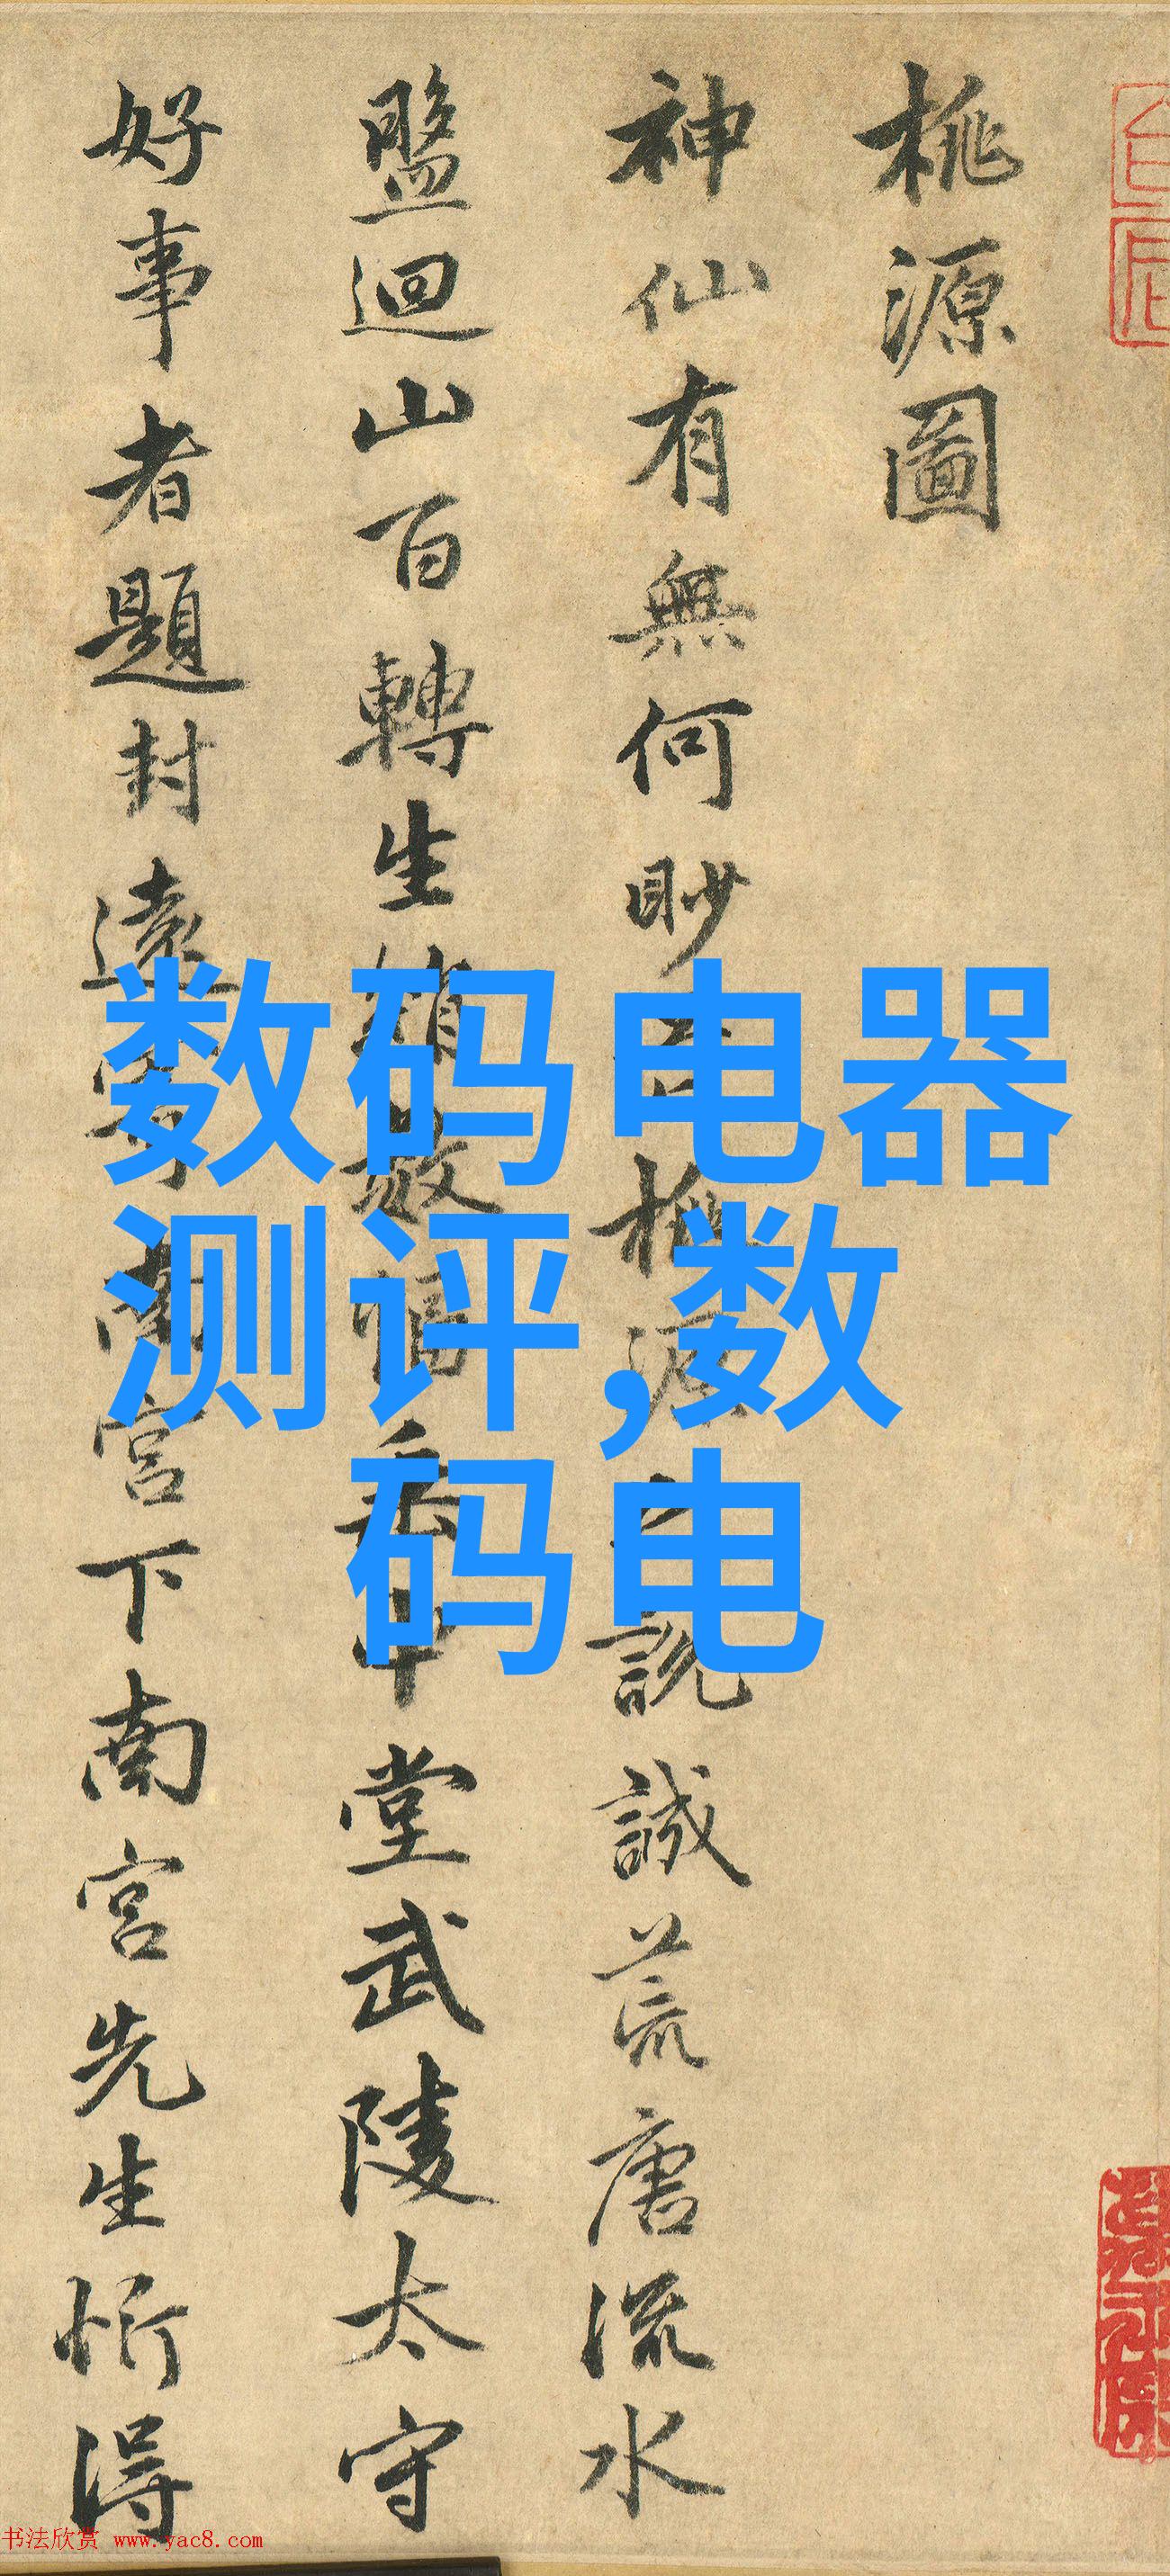 桃源圖
神仙有無何眇桃源說誠荒唐流水
盤迴山百轉生綃數幅垂中堂武陵太守
好事者題封遠寄南宮下南宮先生忻得
数码电器
测评,数
码电
书法欣赏 www.yac8.com